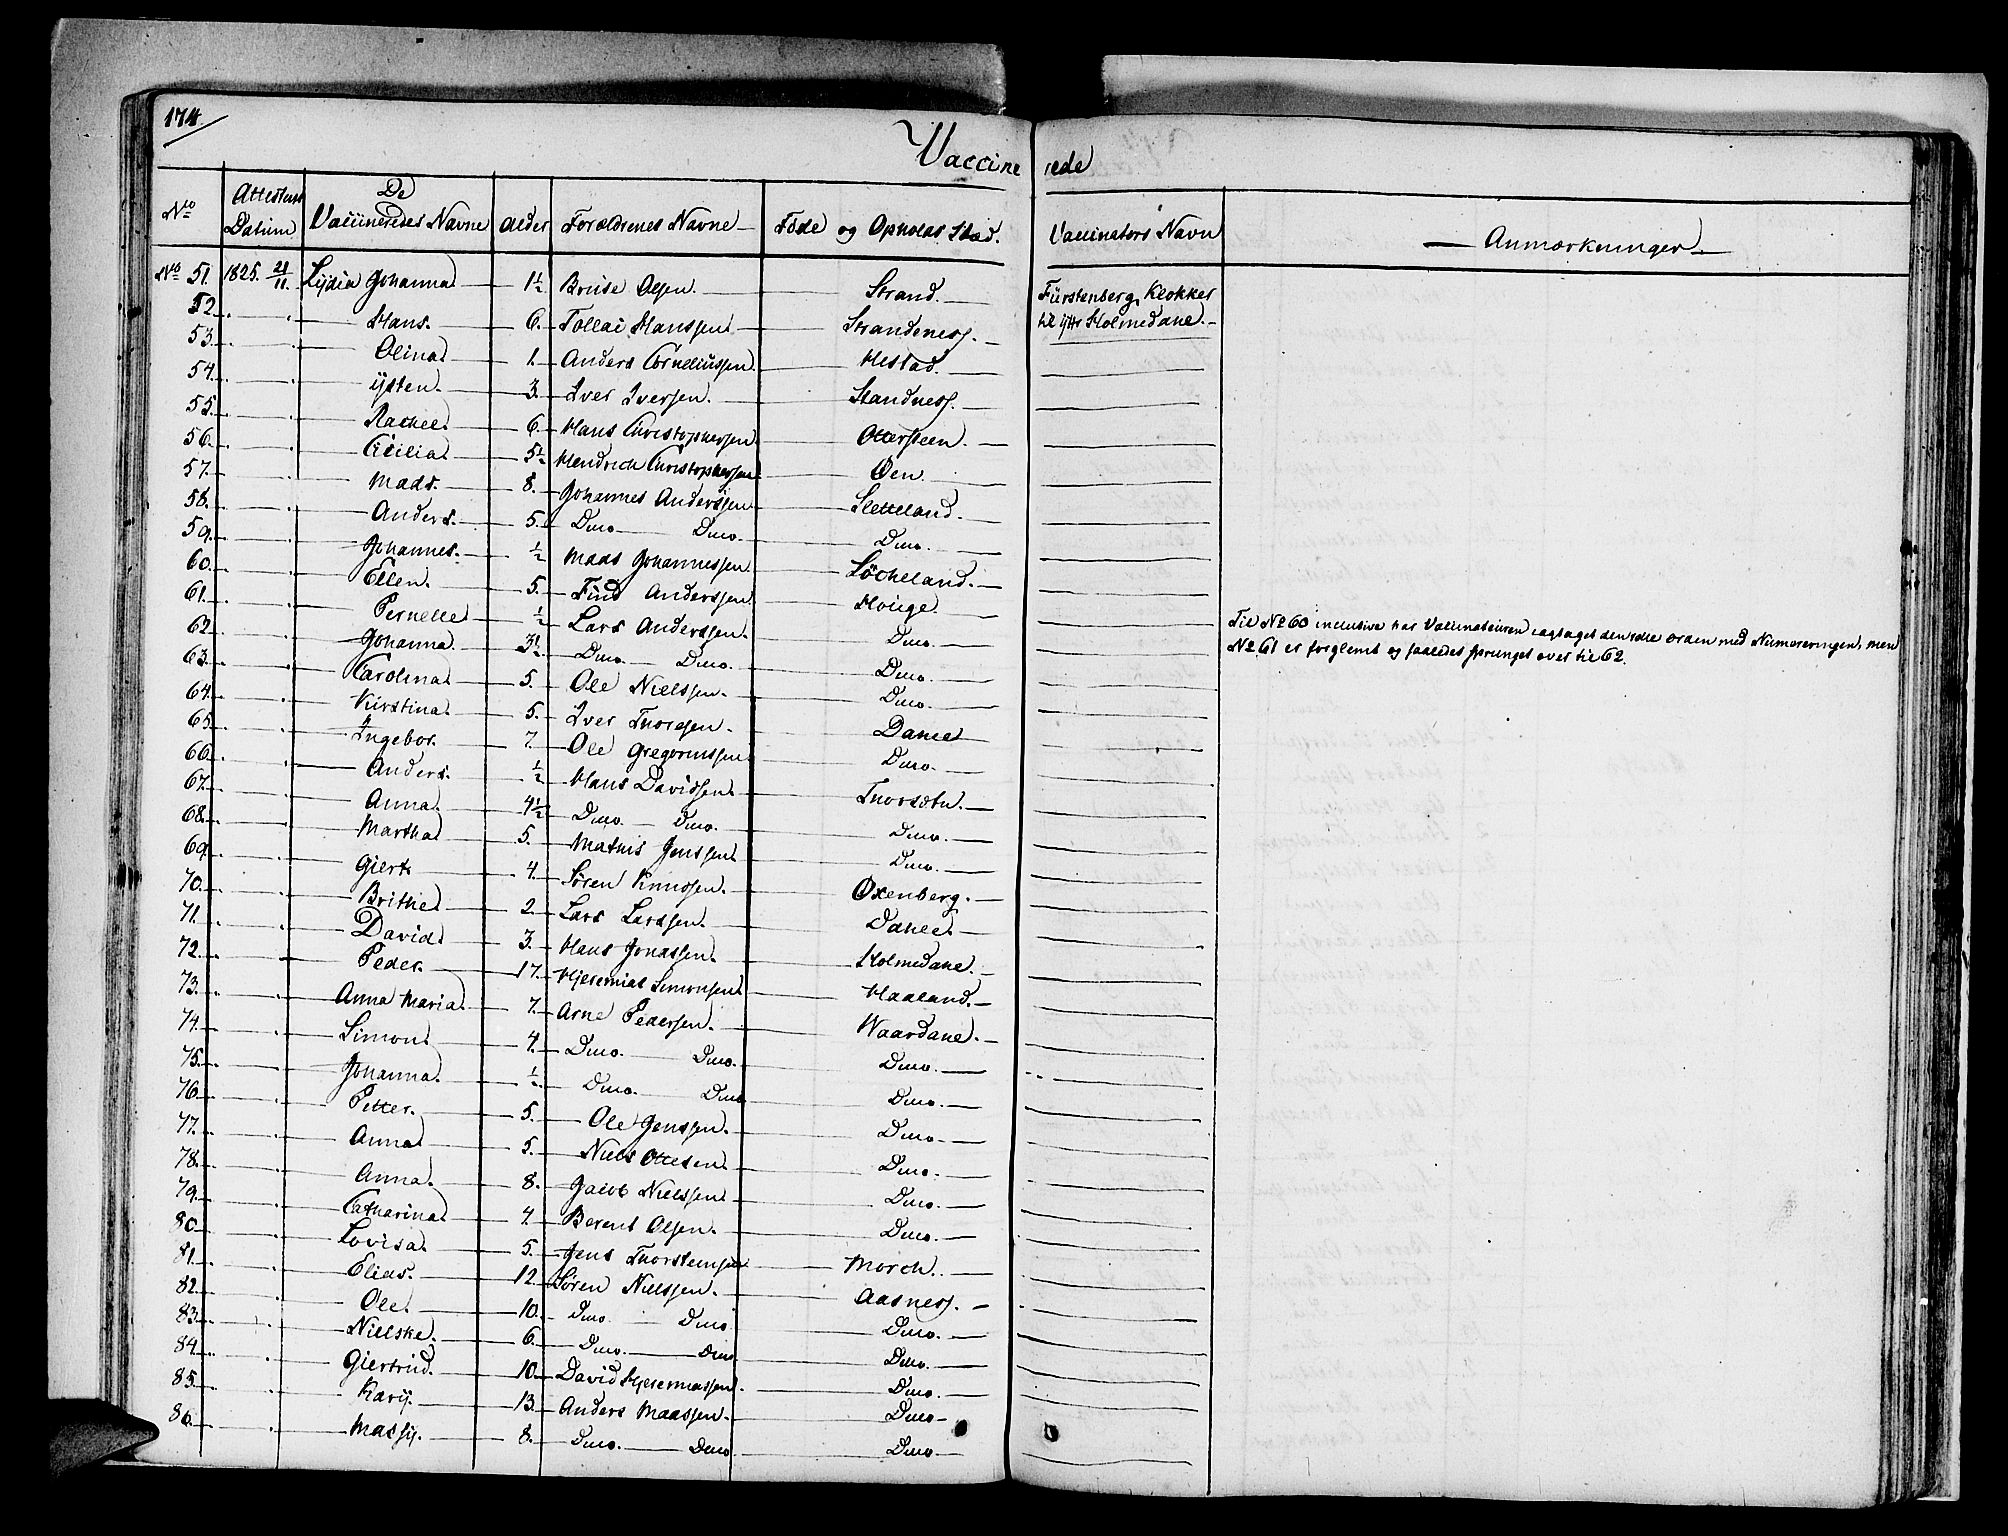 174.
Vaccinerede
No | Attestens Datum | De Vaccineredes Navne | Alder | Forældrenes Navne | Føde og Opholds Stæd. | Vaccinators Navn | Anmærkninger
No 51. 1825. 21/11. Lydia Johanna 1½ Oluf Olsen. Strand. Fürstenberg, Klokker
52. Hans. 6. Tollai Hanssen Strandenesf. til ÿtr Holmedahl.
53. Olina 1. Anders Corneliussen. Hestad.
54. ÿsten. 3. Iver Iversen. Standnesf.
55. Rachel 6. Hans Christophersen Ottersteen.
56. Cicilia 5½ Hendrich Christophersen Øen
57. Mads. 8. Johannes Anderssen Sletteland.
58. Anders. 5. Dito Dito. Dito.
59. Johannes. ½ Mads Johannessen Löcheland.
60. Ellen. 5. Find Anderssen Houge.
61. Pernelle ½ Lars Anderssen. Dito.
62. Johanna. 3½. Dito. Dito. Dito.
63. Carolina 5. Ole Nielssen. Dito.
64. Kirstina. 5. Iver Thoresen. Dahle
65. Ingebor. 7. Ole Gregoriussen Dito.
66. Anders. ½ Hans Davidsen. Thorsetu.
67. Anna. 4½ Dito. Dito. Dito.
68. Martha 5. Mathis Jenssen. Dito.
69. Giert 4. Sören Knudsen. Oxenberg.
70. Brithe 2. Lars Larssen. Dahle.
71. David. 3. Hans Jonassen. Holmedahl.
72. Peder. 17. Hjeremias Simonsen Haaland.
73. Anna Maria 7. Arne Pedersen. Waardahl.
74. Simon. 4. Dito. Dito. Dito.
75. Johanna. ½. Dito. Dito Dito.
76. Petter. 5. Ole Jenssen. Dito.
77. Anna 5. Niels Ottesen. Dito.
78. Anna. 8. Jacob Nielssen Dito.
79. Catharina. 4. Berent Olsen. Dito.
80. Lovisa. 5. Jens Thorstensen Mörch.
81. Elias. 12. Sören Nielssen. Aasnesf.
82. Ole. 10. Dito. Dito Dito.
83. Nielske. 6. Dito. Dito Dito.
84. Giertrud. 10. David Hjeremiassen. Dito.
85. Karÿ. 13. Anders Madssen. Dito
86. Massÿ. 8. Dito. Dito Dito
Til No 60 inclusive har Vaccinateuren iagttaget den rette orden med Numereringen, men
No 61 er forglemt og saaledes sprunget over til 62.